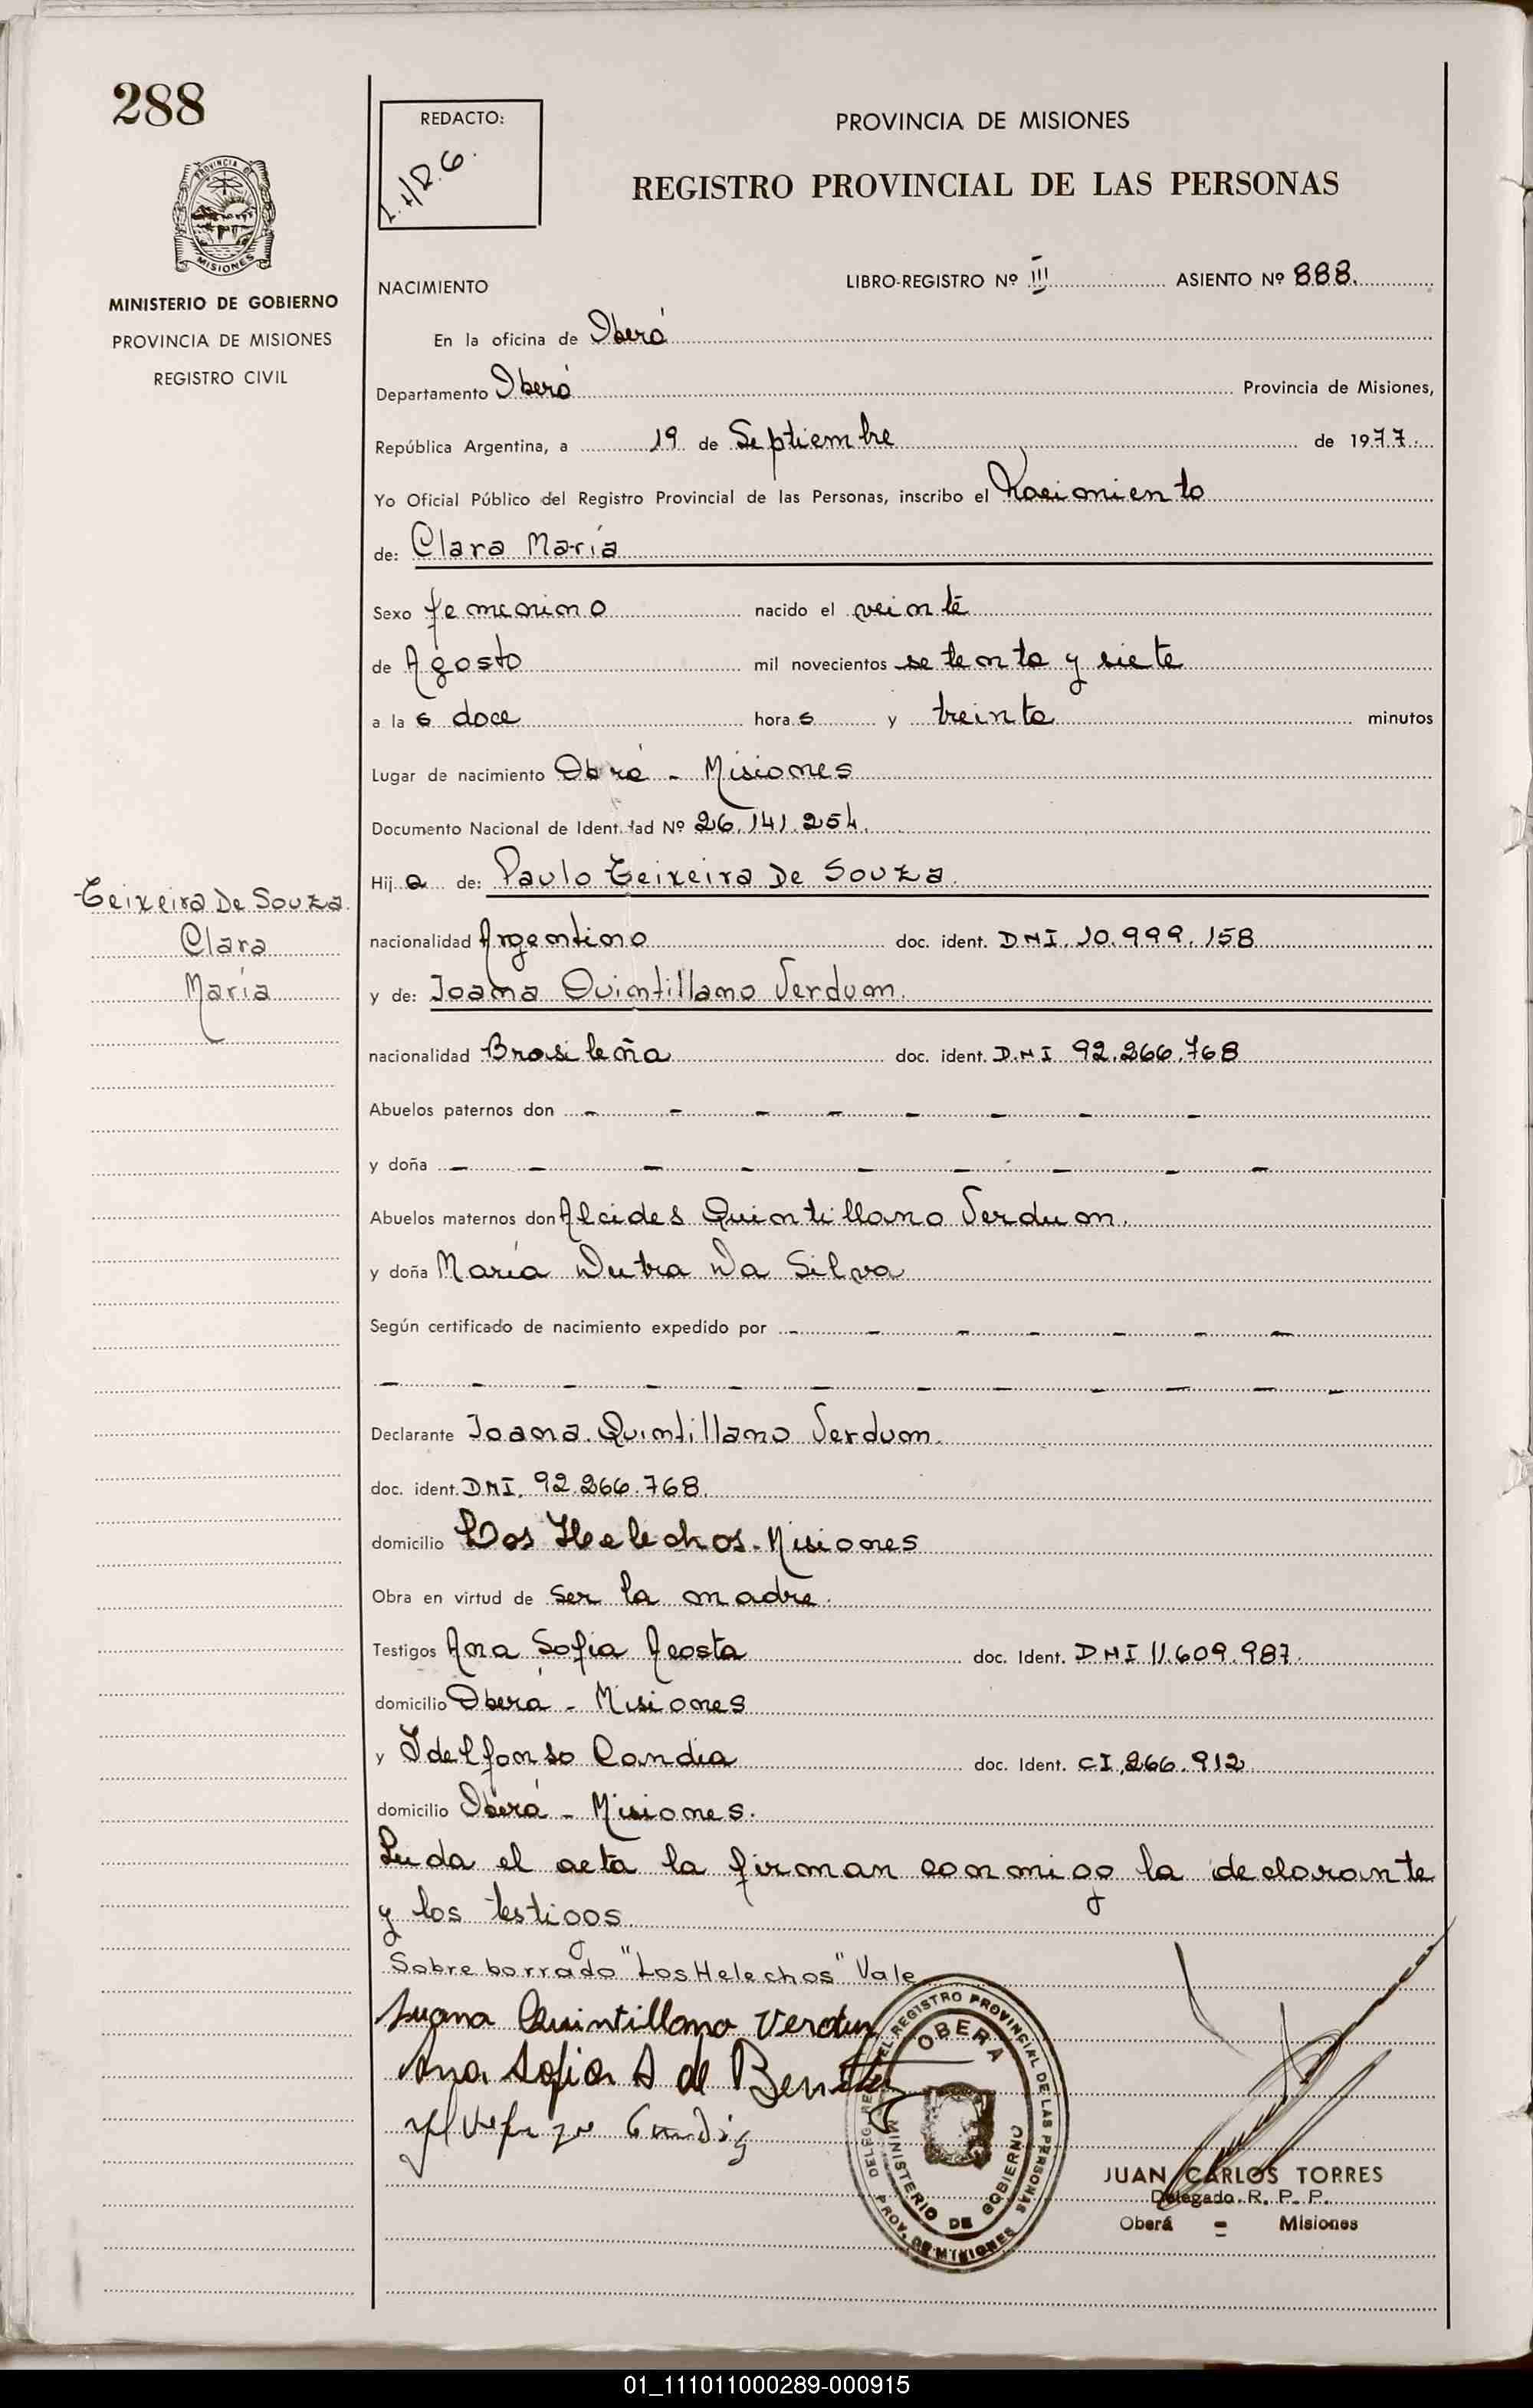 288
REDACTO:
PROVINCIA DE MISIONES
REGISTRO PROVINCIAL DE LAS PERSONAS
MISIONES
MINISTERIO DE GOBIERNO
PROVINCIA DE MISIONES
REGISTRO CIVIL
NACIMIENTO LIBRO-REGISTRO Nº III ASIENTO Nº 888.
En la oficina de Oberá
Departamento Oberá Provincia de Misiones,
República Argentina, a 19 de Septiembre de 1977.
Yo Oficial Público del Registro Provincial de las Personas, inscribo el Nacimiento
de: Clara María
Sexo femenino nacido el veinte
de Agosto mil novecientos setenta y siete
a las doce horas y treinta minutos
Lugar de nacimiento Obrá - Misiones
Documento Nacional de Identidad Nº 26.141.254.
Hija de: Paulo Teixeira De Souza.
Teixeira De Souza.
Clara
María
nacionalidad Argentino doc. ident. DNI. 10.999.158
y de: Joana Quintillano Verdum.
nacionalidad Brasileña doc. ident. D.N.I 92.266.768
Abuelos paternos don - - - - - - - -
y doña - - - - - - - - -
Abuelos maternos don Alcides Quintillano Verdum.
y doña María Dutra Da Silva
Según certificado de nacimiento expedido por - - - - - - -
- - - - - - - - - - - -
Declarante Joana Quintillano Verdum.
doc. ident. DNI. 92.266.768.
domicilio Los Helechos - Misiones
Obra en virtud de ser la madre.
Testigos Ana Sofia Acosta doc. Ident. DNI 11.609.987.
domicilio Oberá - Misiones
y Idelfonso Candia doc. Ident. CI.266.912
domicilio Oberá - Misiones.
Leida el acta la firman conmigo la declarante
y los testigos
Sobre borrado "Los Helechos" Vale
Juana Quintillano Verdun
Ana Sofia A de Benitez
DELEG. DEL REGISTRO PROVINCIAL DE LAS PERSONAS
OBERA
MINISTERIO DE GOBIERNO
PROV. DE MISIONES
JUAN CARLOS TORRES
Delegado R. P. P.
Oberá - Misiones
01_111011000289-000915